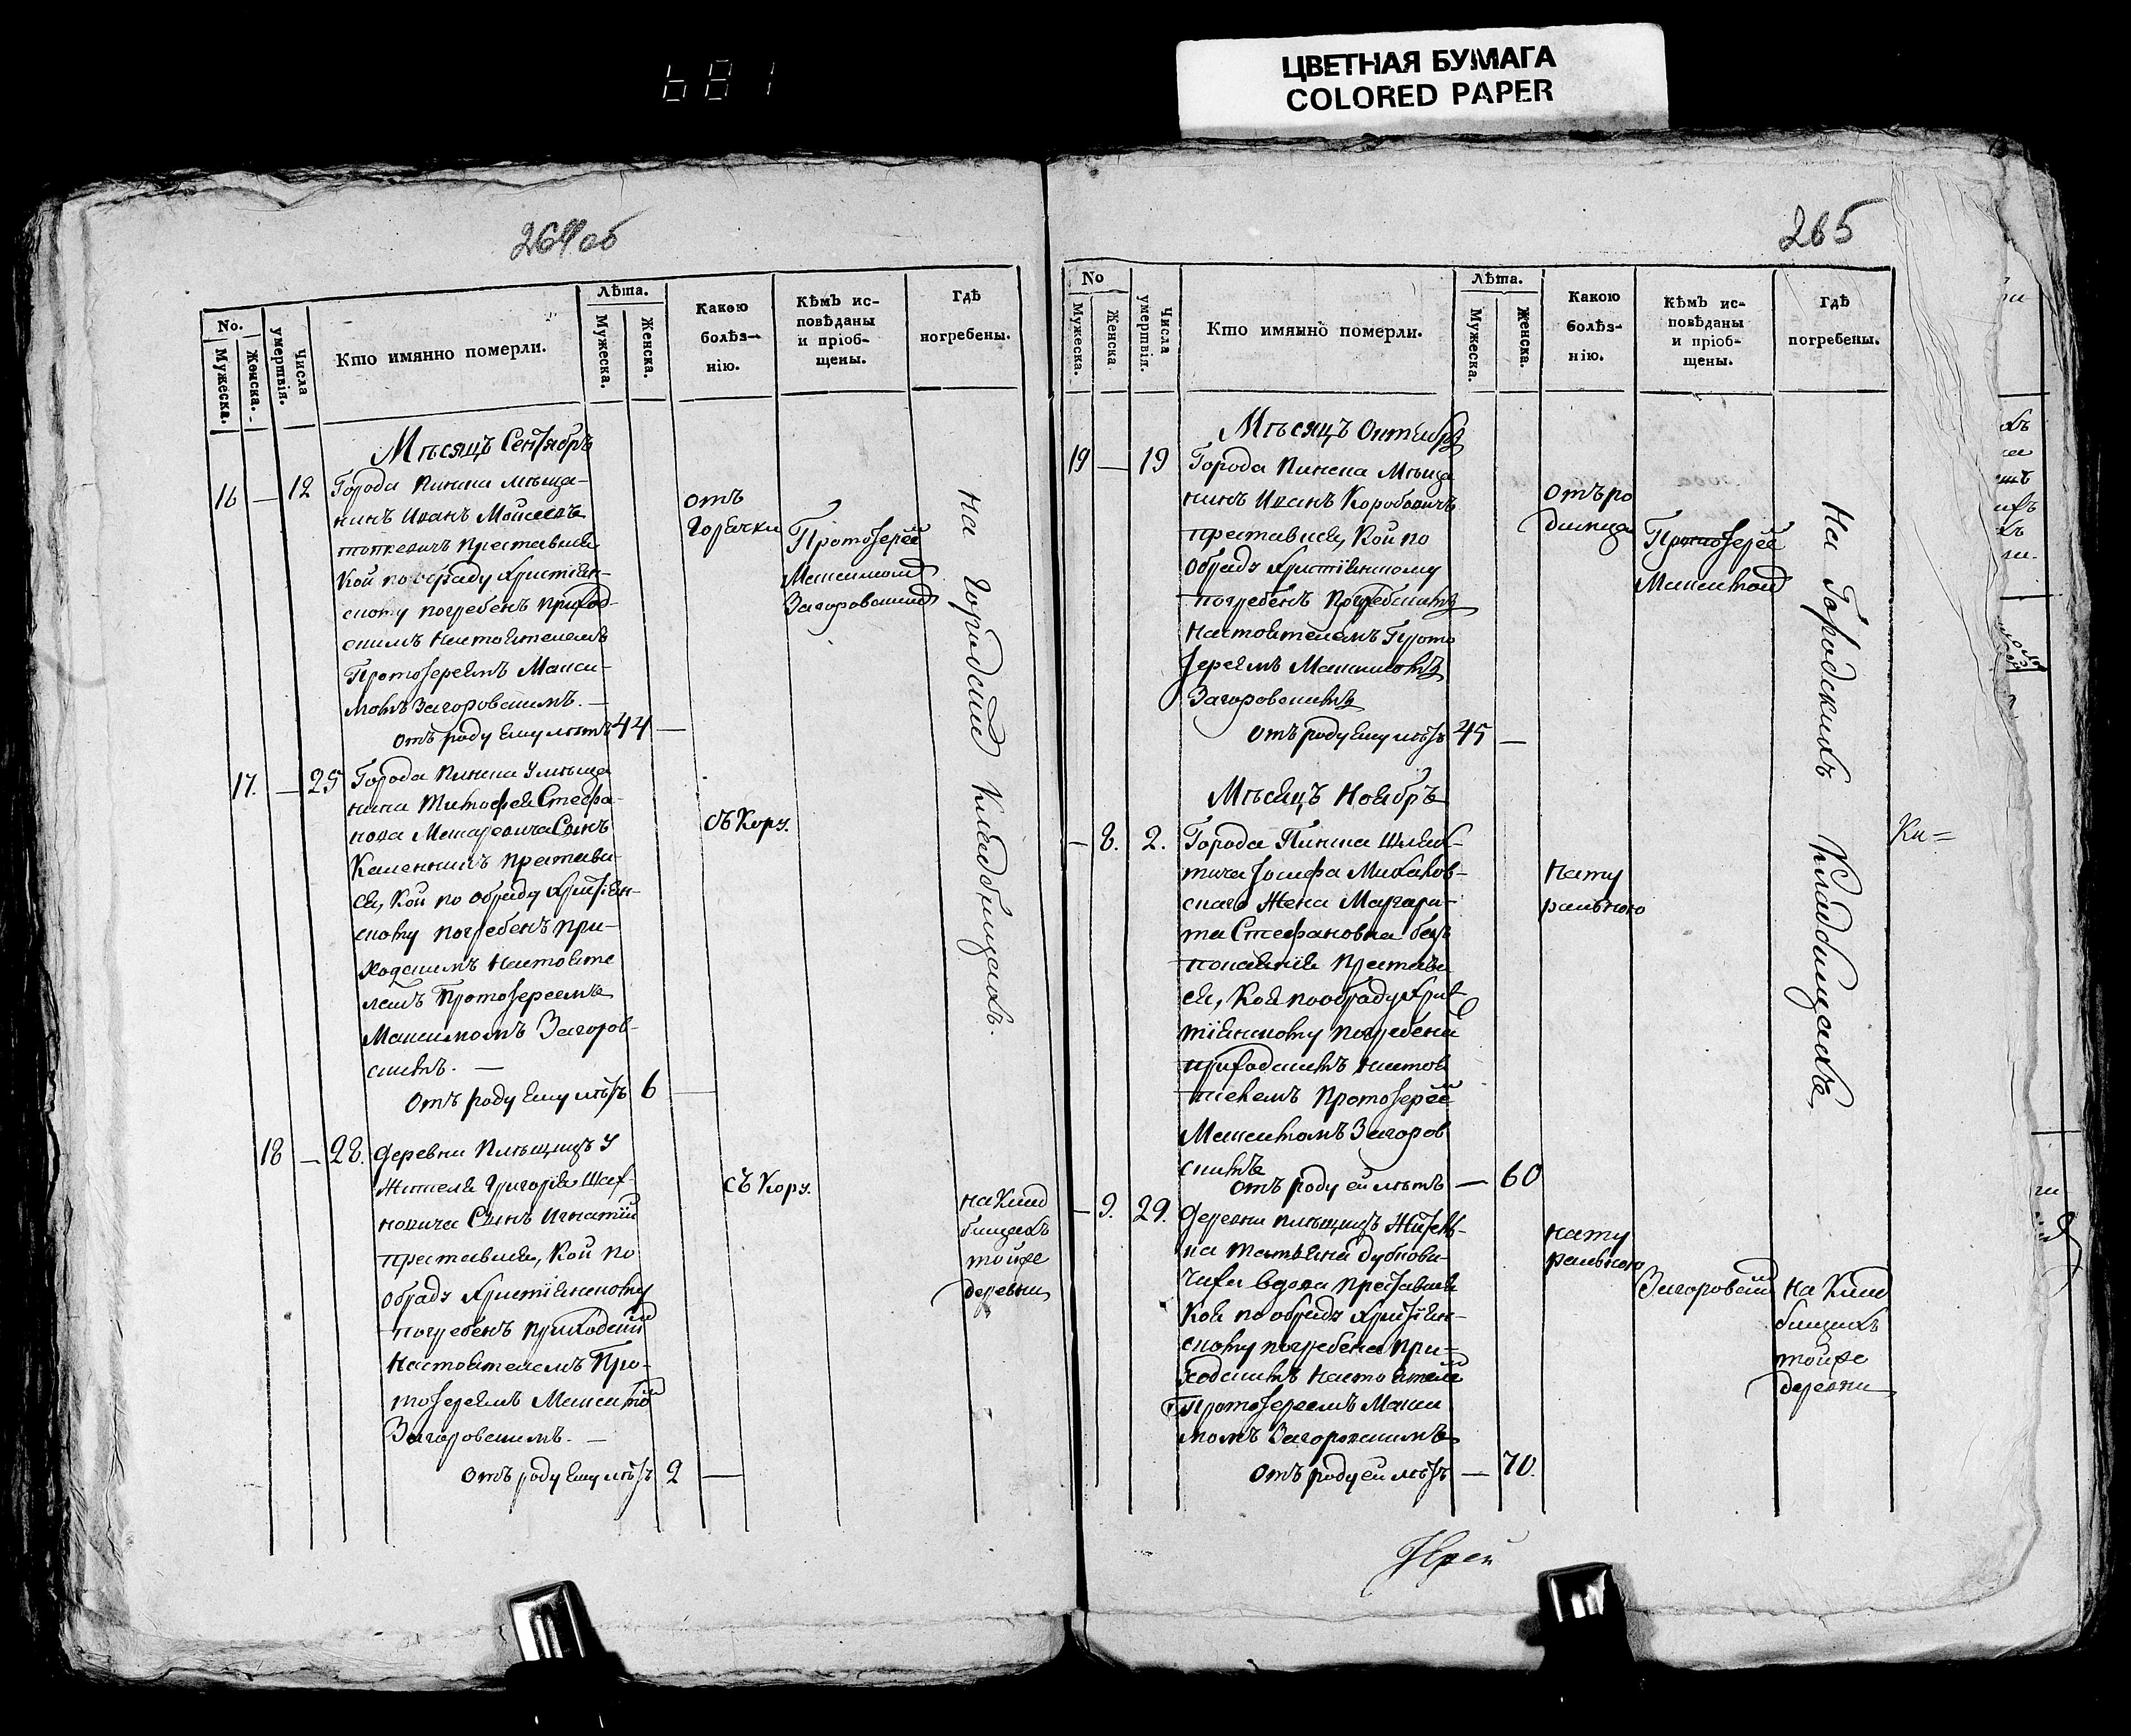 681
ЦВЕТНАЯ БУМАГА
COLORED PAPER
264об
No.
Мужеска.
Женска.
Числа умертвія.
Кто имянно померли.
Лѣта.
Мужеска.
Женска.
Какою
болѣз-
нію.
Кѣмъ ис-
повѣданы
и пріоб-
щены.
Гдѣ
погребены.
Мѣсяцъ Сентябрь
16 — 12 Города Пинска мѣща-
нинъ Иванъ Моисеевъ
преставися
Кой по обряду Христіян-
скому погребенъ приход-
скимъ Настоятелемъ
Протоіереемъ Макси-
момъ Загоровскимъ. —
Отъ роду ему лѣтъ 44 —
отъ
горячки
Протоіерей
Максимом
Загоровским
На городских кладбищахъ.
17. — 25 Города Пинска у мѣща
нина Тимофея Стефа-
нова Сынъ
престави-
ся, Кой по обряду Христіян-
скому погребенъ при-
ходскимъ Настояте
лемъ Протоіереемъ
Максимомъ Загоров-
скимъ. —
Отъ роду ему лѣтъ 6 —
съ Кору.
18 — 28. Деревни Плещицъ у
жителя Григорія
новича Сынъ Игнатій
преставися, Кой по
обряду Христіянскому
погребенъ Приходский
Настоятелемъ Про-
тоіереемъ Максимо
Загоровскимъ. —
Отъ роду ему лѣтъ 2 —
съ Кору.
на клад
бищахъ
тойже
деревни
265
No
Мужеска.
Женска
Числа умертвія.
Кто имянно померли.
Лѣта.
Мужеска.
Женска.
Какою
болѣз-
нію.
Кѣмъ ис-
повѣданы
и пріоб-
щены.
Гдѣ
погребены.
Мѣсяцъ Октябрь
19 — 19 Города Пинска Мѣща
нинъ Иванъ Коробовичъ
преставися, Кой по
обряду Христіянскому
погребенъ
Настоятелемъ Прото
іереемъ Максимомъ
Загоровскимъ
Отъ роду ему лѣтъ 45 —
Протоіерей
Максимом
На Городскихъ Кладбищахъ,
Мѣсяцъ Ноябрь
— 8. 2. Города Пинска Шлях-
тича Іосифа
скаго Жена Маргари-
та Стефановна безъ
покаянія Престави
ся, Коя по обряду Хрис
тіянскому погребена
приходскимъ Настоя
телемъ Протоіерей
Максимомъ Загоров
скимъ
Отъ роду ей лѣтъ — 60
нату
ральною
Ки=
— 9. 29. Деревни Плещицъ Житель-
ка Татьяна
вдова преставися
Коя по обряду Христіян-
скому погребена при-
ходскимъ Настоятеле
Протоіереемъ Макси
момъ Загоровскимъ
Отъ роду ей лѣтъ — 70.
нату
ральною
Загоровский
на клад
бищахъ
тойже
деревни
Іерей